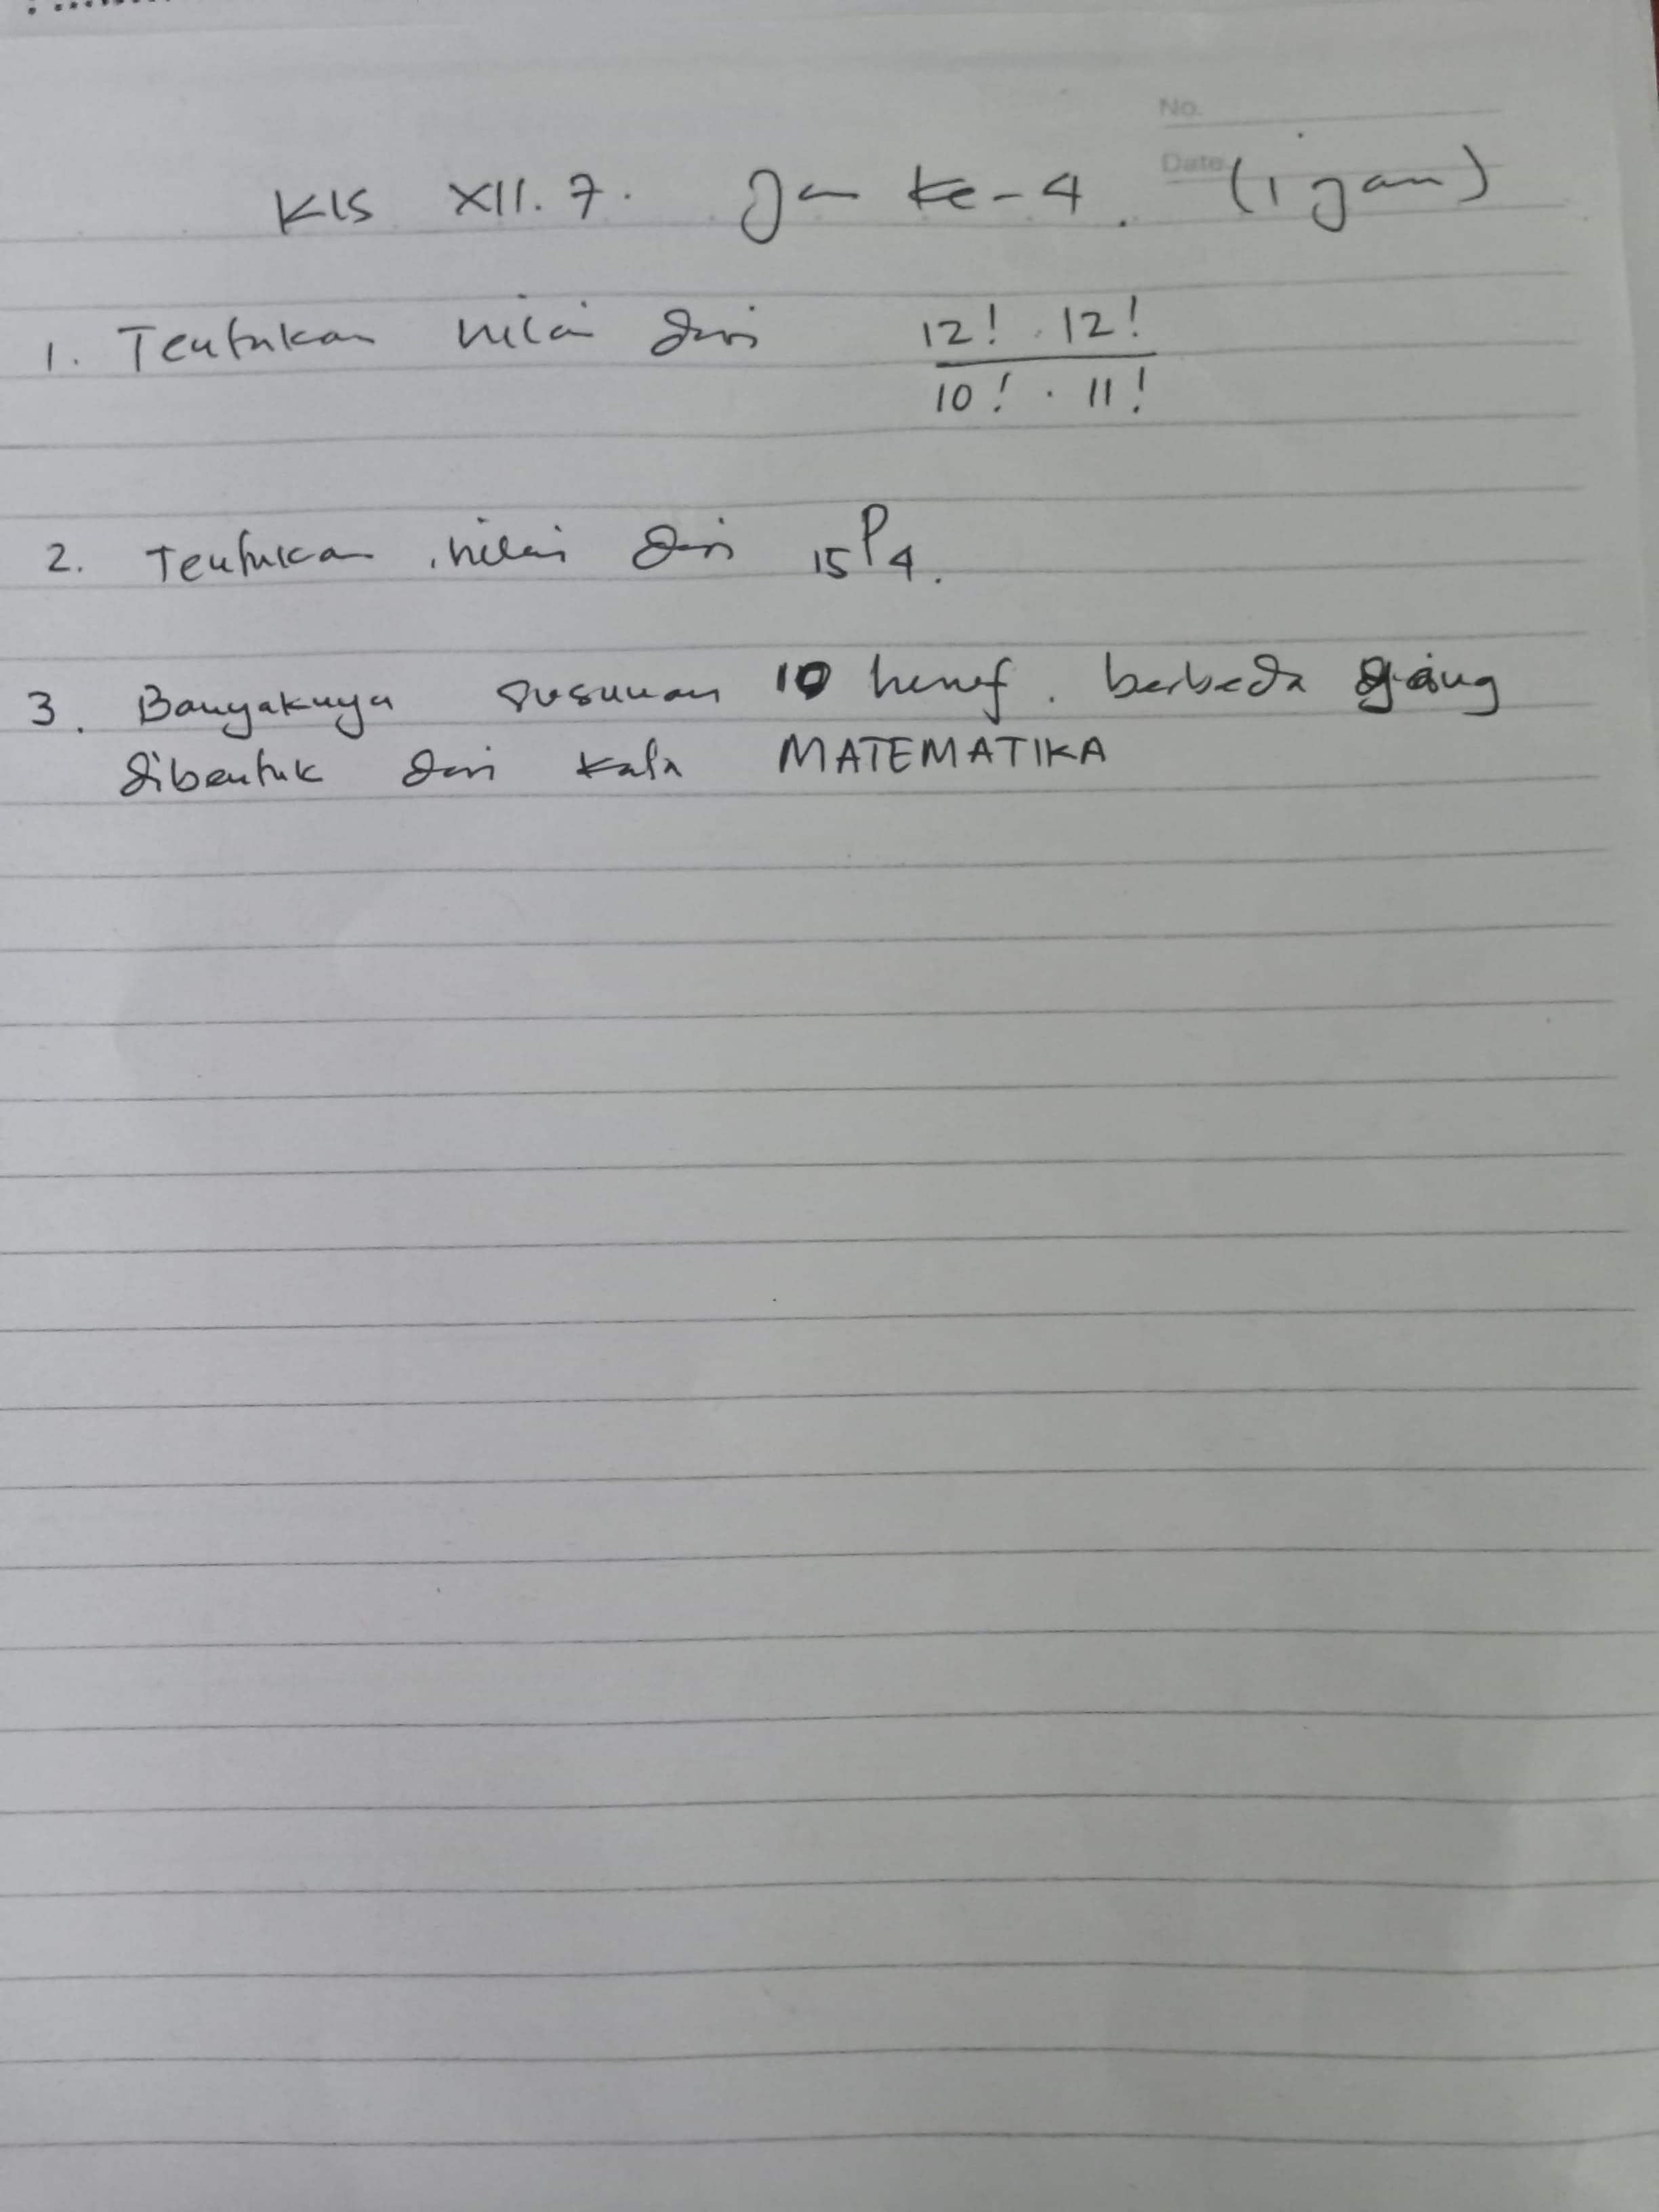 No.
Date
Kls XII.7. Jam ke-4. (1 jam)
1. Tentukan nilai dari 12! . 12! / 10! . 11!
2. Tentukan nilai dari 15P4.
3. Banyaknya susunan 10 huruf. berbeda yang
dibentuk dari kata MATEMATIKA